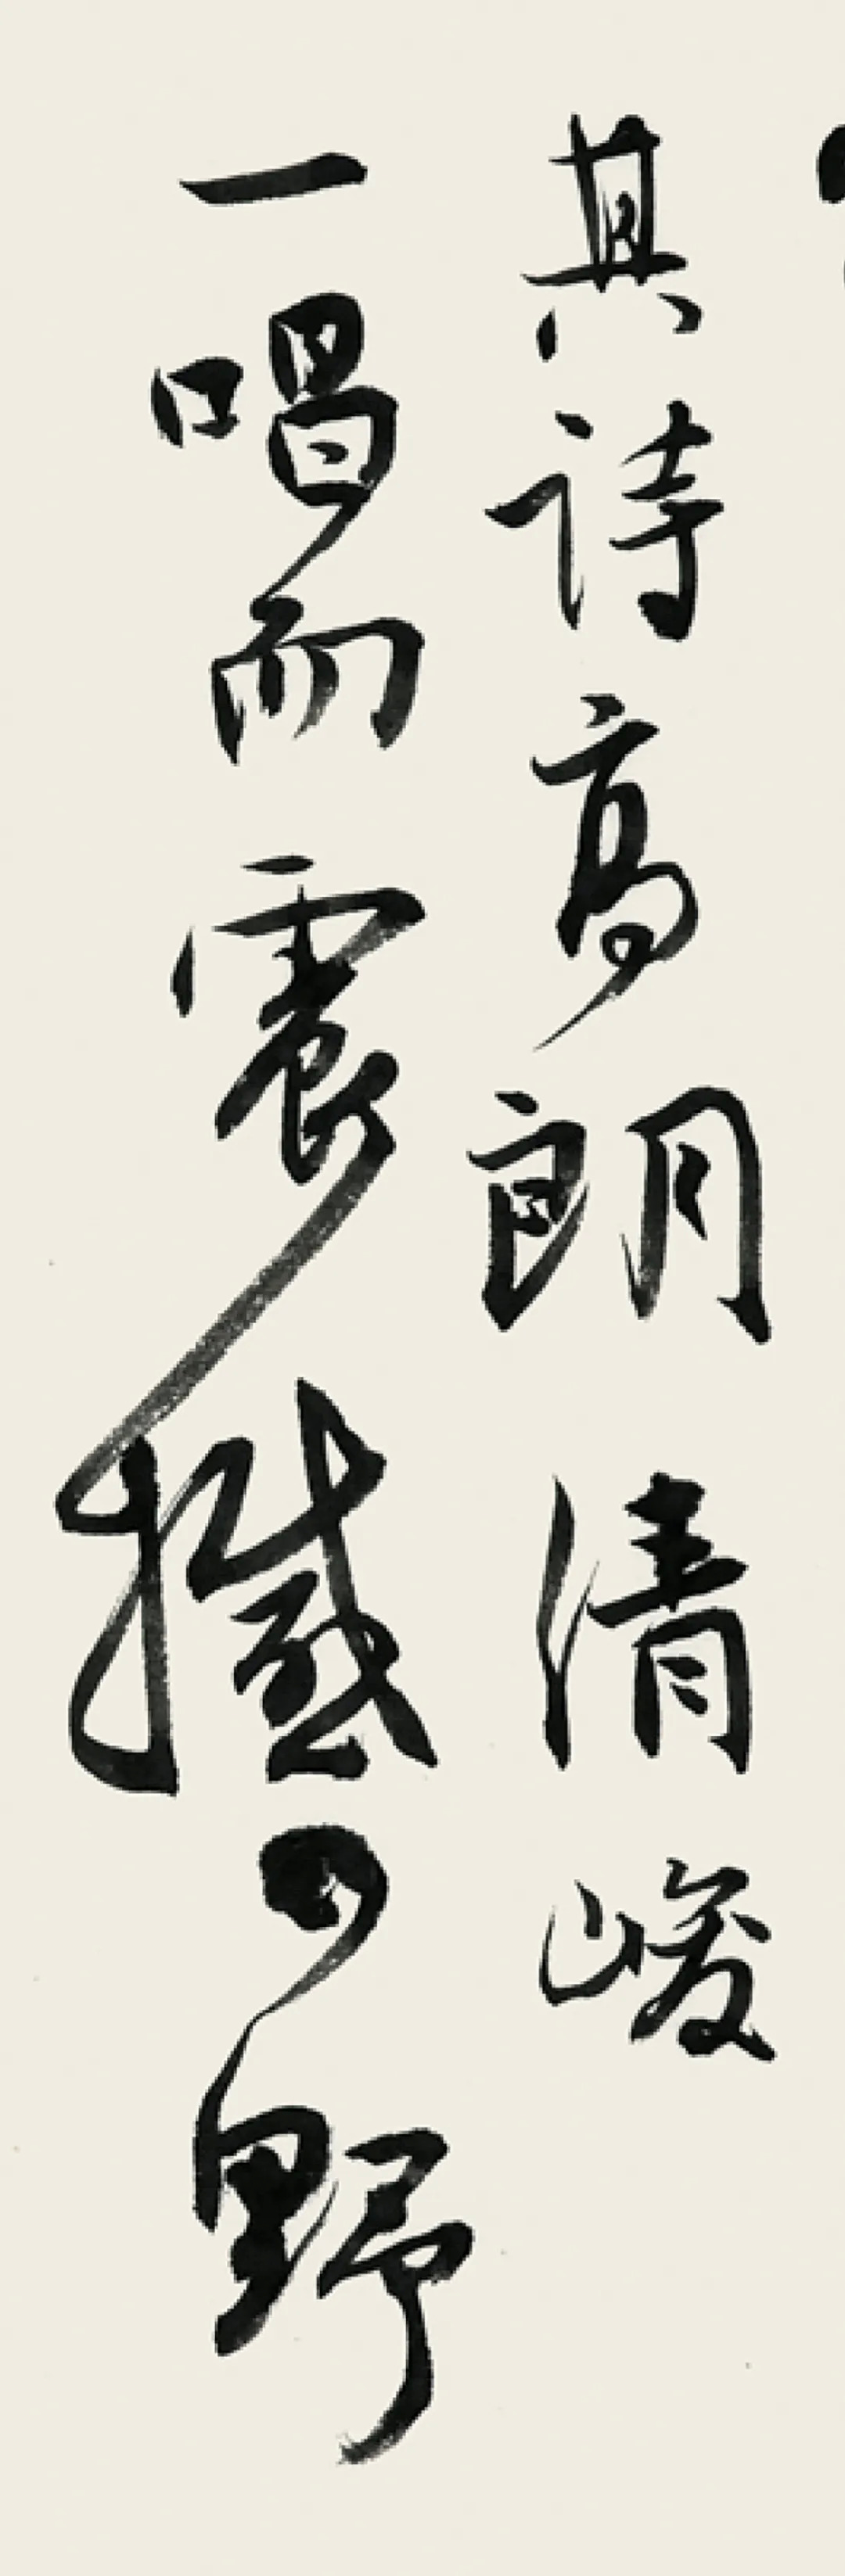 其诗高朗清峻
一唱而震撼四野